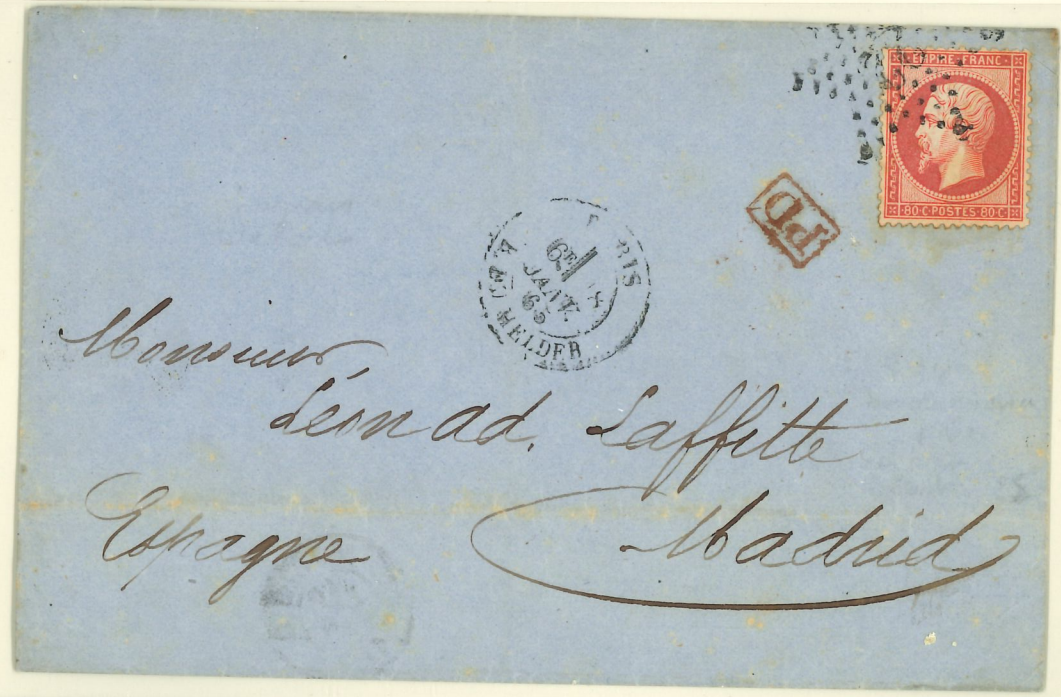 EMPIRE FRANC
80 C · POSTES · 80 C
PD
PARIS
6E
JANV.
65
HELDER
Monsieur
Léon ad. Laffitte
Espagne Madrid